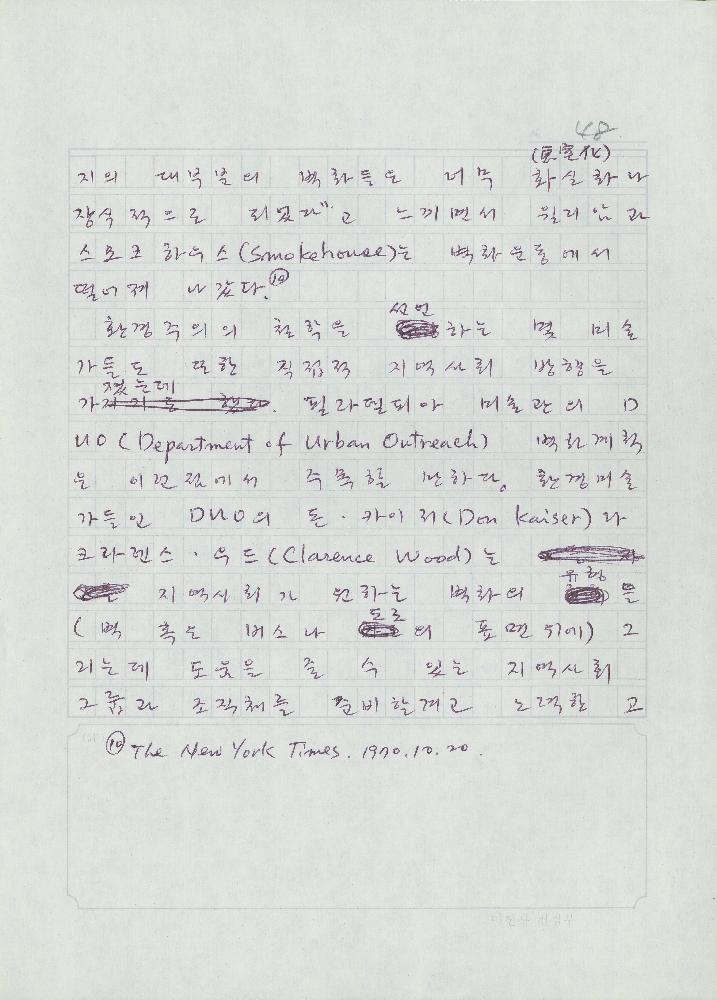 48
(画室化)
지의 대부분의 벽화들은 너무 화실화나
장식적으로 되었다"고 느끼면서 윌리암과
스모크 하우스(Smokehouse)는 벽화운동에서
떨어져 나갔다.⑲
선언
환경주의의 철학을 하는 몇 미술
가들도 또한 직접적 지역사회 방행을
졌는데
가지기도 했다. 필라델피아 미술관의 D
UO (Department of Urban Outreach) 벽화계획
은 이런점에서 주목할 만하다. 환경미술
가들인 DUO의 돈·카이저(Don Kaiser)와
크라렌스·우드(Clarence Wood)는
유형
지역사회가 원하는 벽화의 을
도로
(벽 혹은 버스나 의 표면위에) 그
리는데 도움을 줄 수 있는 지역사회
그룹과 조직체를 준비할려고 노력한 고
⑲ The New York Times. 1970.10.20.